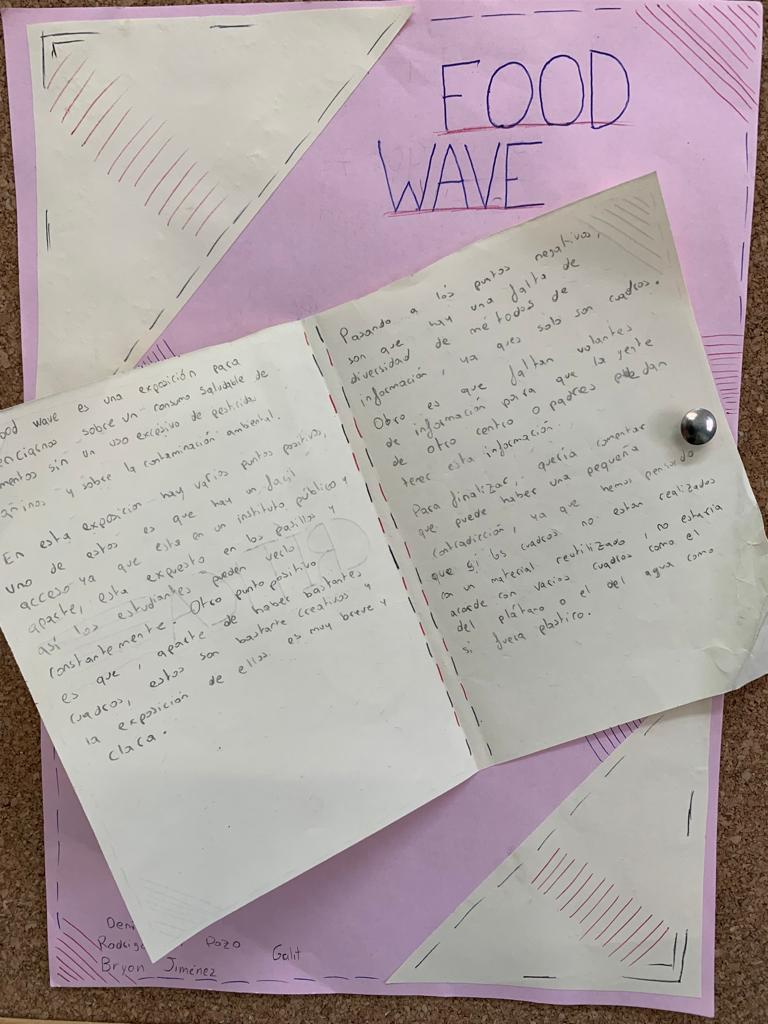 FOOD
WAVE
ood wave es una exposición para
enciarnos sobre un consumo saludable de
mentos sin un uso excesivo de pesticidas
añinos y sobre la contaminación ambiental.
En esta exposicion hay varios puntos positivos,
uno de estos es que hay un facil
acceso ya que esta en un instituto público y
aparte, esta expuesto en los pasillos y
así los estudiantes pueden verlo
constantemente. Otro punto positivo
es que, aparte de haber bastantes
cuadros, estos son bastante creativos y
la exposición de ellos es muy breve y
clara.
Pasando a los puntos negativos,
son que hay una falta de
diversidad de métodos de
información, ya que solo son cuadros.
Otro es que faltan volantes
de información para que la gente
de otro centro o padres puedan
tener esta información.
Para finalizar, quería comentar
que puede haber una pequeña
contradicción, ya que hemos pensado
que si los cuadros no estan realizados
con un material reutilizado, no estaria
acorde con varios cuadros como el
del plátano o el del agua como
si fuera plastico.
Deni
Rodrig Pozo
Galit
Bryon Jiménez